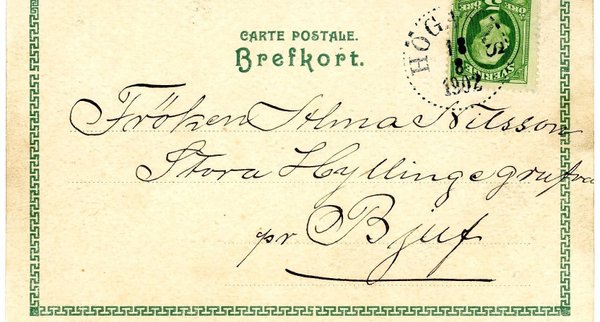 CARTE POSTALE.
Brefkort.
HÖGA
18
8
1902
SVERIGE
Fröken Alma Nilsson
Stora Hyllinge grufva
pr Bjuf